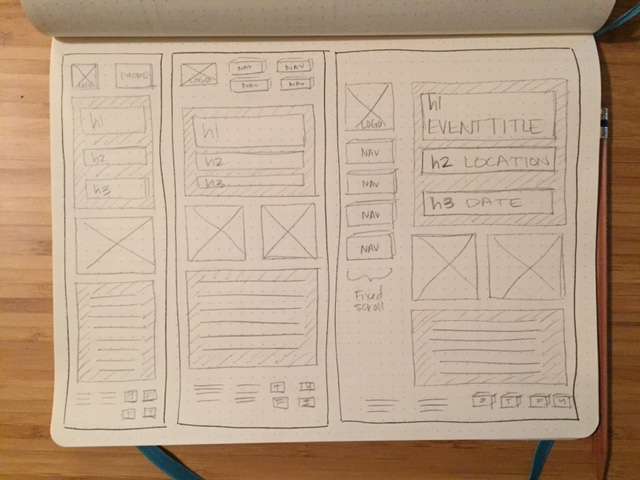 LOGO
MORE
h1
h2
h3
LOGO
NAV
NAV
NAV
NAV
h1
h2
h3
LOGO
NAV
NAV
NAV
NAV
Fixed
scroll
h1
EVENT TITLE
h2 LOCATION
h3 DATE